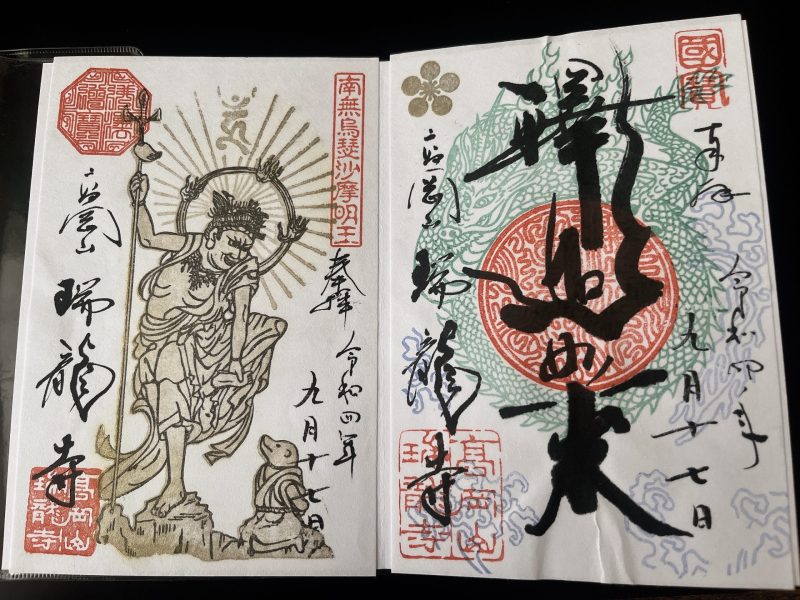 國寶
奉拝
令和四年
九月十七日
釋迦如来
高岡山
瑞龍寺
高岡山
瑞龍寺
南無烏瑟沙摩明王
奉拝
令和四年
九月十七日
高岡山
瑞龍寺
高岡山
瑞龍寺